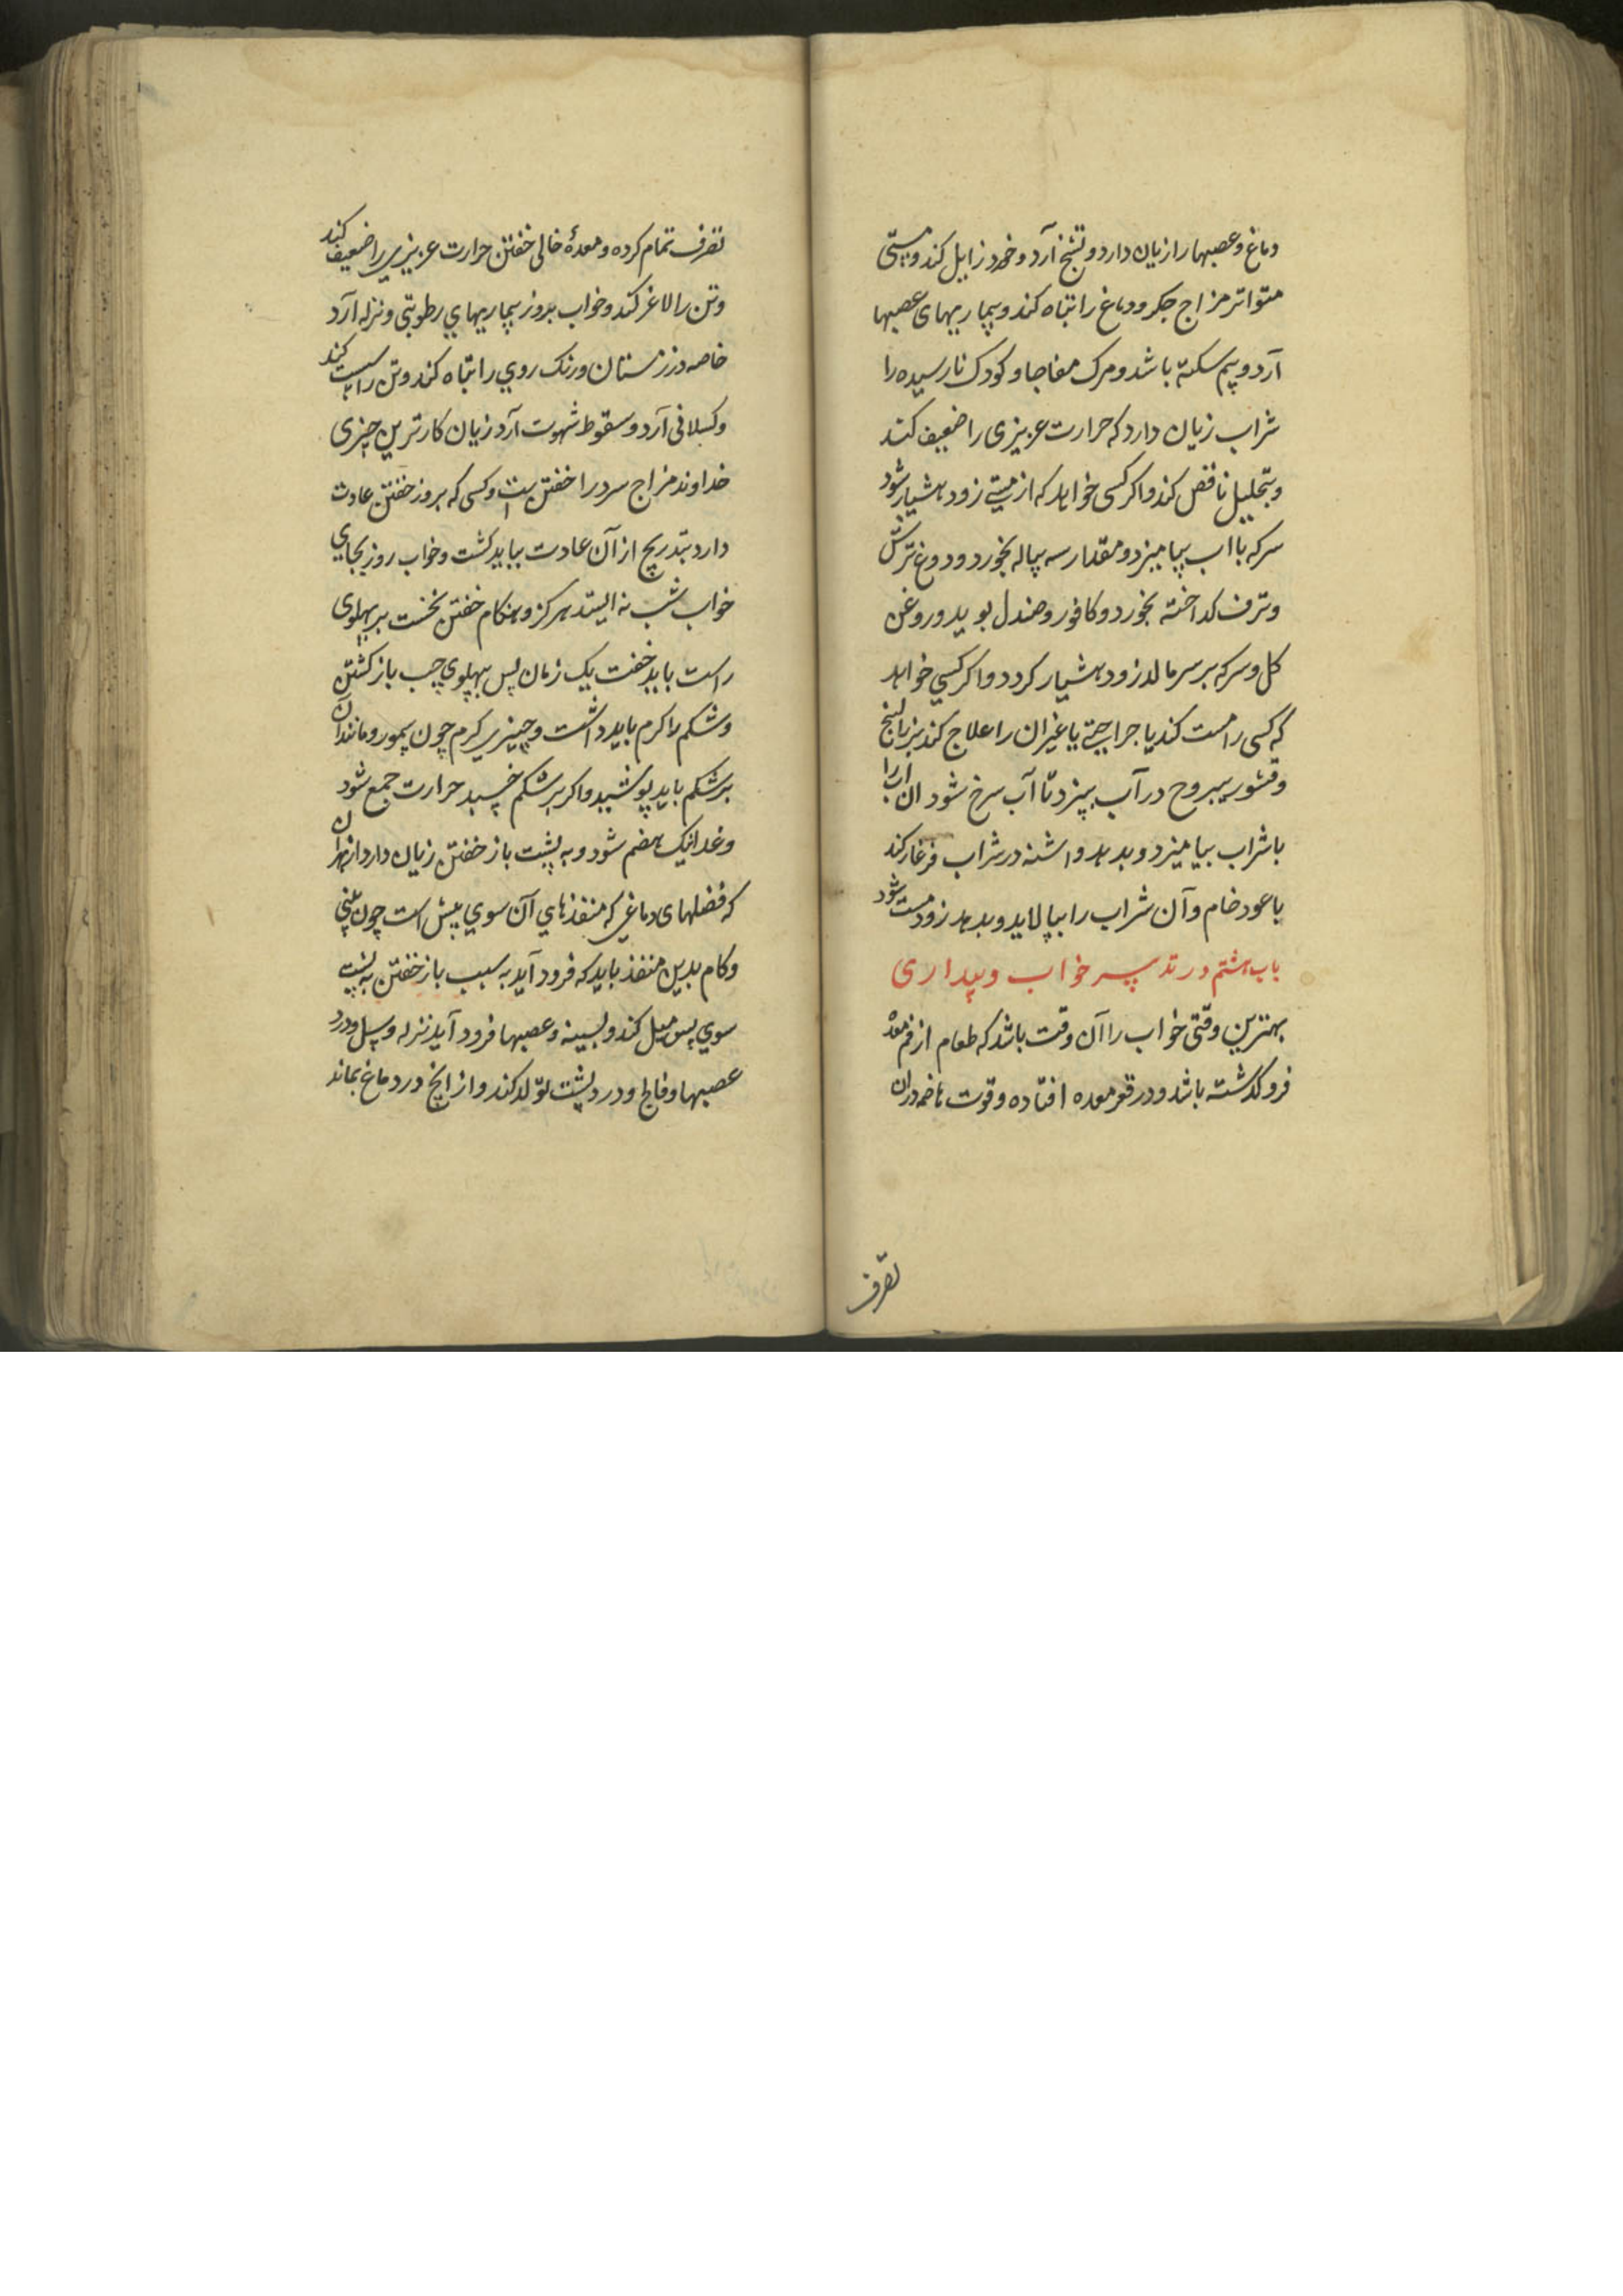 دماغ و عصبها را زیان دارد و تشنج آرد و خرد زایل کند و مستی
متواتر مزاج جکر و دماغ را تباه کند و بیماریهای عصبها
آرد و بیم سکته باشد و مرک مفاجا و کودک نارسیده را
شراب زیان دارد که حرارت عزیزی را ضعیف کند
و بتحلیل ناقص کند و اکر کسی خواهد که از مستی زود هشیار شود
سرکه با اب بیامیزد و مقدار سه پیاله بخورد و دوغ ترش
و ترف کداخته بخورد و کافور و صندل بوید و روغن
کل و سرکه بر سر مالد زود هشیار کردد و اکر کسی خواهد
که کسی را مست کند یا جراحتی یا غیر ان را علاج کند بزرالبنج
و قشور یبروح در آب بپزد تا آب سرخ شود ان اب را
با شراب بیامیزد و بدهد و اشنه در شراب فرغار کند
با عود خام و آن شراب را بپالاید و بدهد زود مست شود
باب هشتم در تدبیر خواب و بیداری
بهترین وقتی خواب را آن وقت باشد که طعام از فم معده
فرو کذشته باشد و در قعر معده افتاده و قوت هاضمه در ان
تصرف
تصرف تمام کرده و معدهٔ خالی خفتن حرارت عزیزی را ضعیف کند
و تن را لاغر کند و خواب بروز بیماریهای رطوبتی و نزله آرد
خاصه در زمستان و رنک روی را تباه کند و تن را سست کند
و کسلانی آرد و سقوط شهوت آرد زیان کارترین چیزی
خداوند مزاج سرد را خفتن است و کسی که بروز خفتن عادت
دارد بتدریج از آن عادت بباید کشت و خواب روز بجای
خواب شب نه ایستد هرکز و هنکام خفتن نخست بر پهلوی
راست باید خفت یک زمان پس بپهلوی چپ باز کشتن
و شکم را کرم باید داشت و چیزی کرم چون سمور و مانند آن
بر شکم باید پوشید و اکر بر شکم خسبد حرارت جمع شود
و غدا نیک هضم شود و به پشت باز خفتن زیان دارد از بهر ان
که فضلهای دماغی که منفذهای آن سوی پیش است چون بینی
و کام بدین منفذ باید که فرود آید به سبب باز خفتن به پشت
سوی پس میل کند و بسینه و عصبها فرود آید نزله و سل و درد
عصبها و فالج و درد پشت تولد کند و از انچ در دماغ بماند